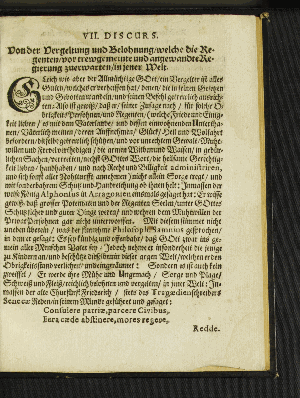 VII. DISCURS.
Von der Vergeltung und Belohnung/welche die Re-
genten/vor trewgemeinte und angewandte Re-
gierung zuerwarten/in jener Welt.
GLeich wie aber der Allmächtige GOtt/ein Vergelter ist alles
Guten/welches er verheissen hat/denen/die in seinen Gesetzen
und Geboten wandeln/und seinen Befehl getrewlich ausrich-
ten: Also ist gewiß/daß er/seiner Zusage nach/für solche O-
brigkeits Personen/und Regenten/(welche Friede und Einig-
keit lieben/es mit dem Vaterlande/und dessen einwohnenden Untertha-
nen/Väterlich meinen/deren Auffnehmen/Glück/Heil und Wolfahrt
befordern/dieselbe getrewlich schützen/und vor unrechtem Gewalt/Muth-
willen und Frevel vertheidigen/die armen Witben und Waisen/in gebür-
lichen Sachen/vertreten/
lieben/handhaben/und nach Recht und Billigkeit administriren,
und sich sonst aller Nothdurfft annehmen) nicht allein Sorge tregt/und
mit sonderbahrem Schutz und Handreichung ob ihnen hält: Immassen der
weise König Alphonsus in Arragonien einsmals gesaget hat: Er wisse
gewiß/daß grosser Potentaten und der Regenten Seelen/unter GOttes
Schutz sicher und guter Dinge weren/und wehren dem Muthwillen der
Privat Personen gar nicht unterworffen. Mit diesem stimmet nicht
uneben überein/was der
in dem er gesagt: Es sey kündig und offenbahr/daß GOtt zwar als ge-
mein aller Menschen Vater sey/Jedoch nehme er insonderheit die jenige
zu Kindern an/und beschütze dieselbe
Obrigkeitsstand verleihen/
zweiffel/Er werde ihre Mühe und Ungemach/Sorge und Plage/
Schweiß und Fleiß/reichlich belohnen und vergelten/in jener Welt: Im-
massen der alte Churfürst Friederich/stets des Tragœdienschreibers
Senecæ Reden in seinem Munde geführet und gesaget:
Consulere patriæ, parcere Civibus,
Fera cæde abstinere, mores regere,
Redde.